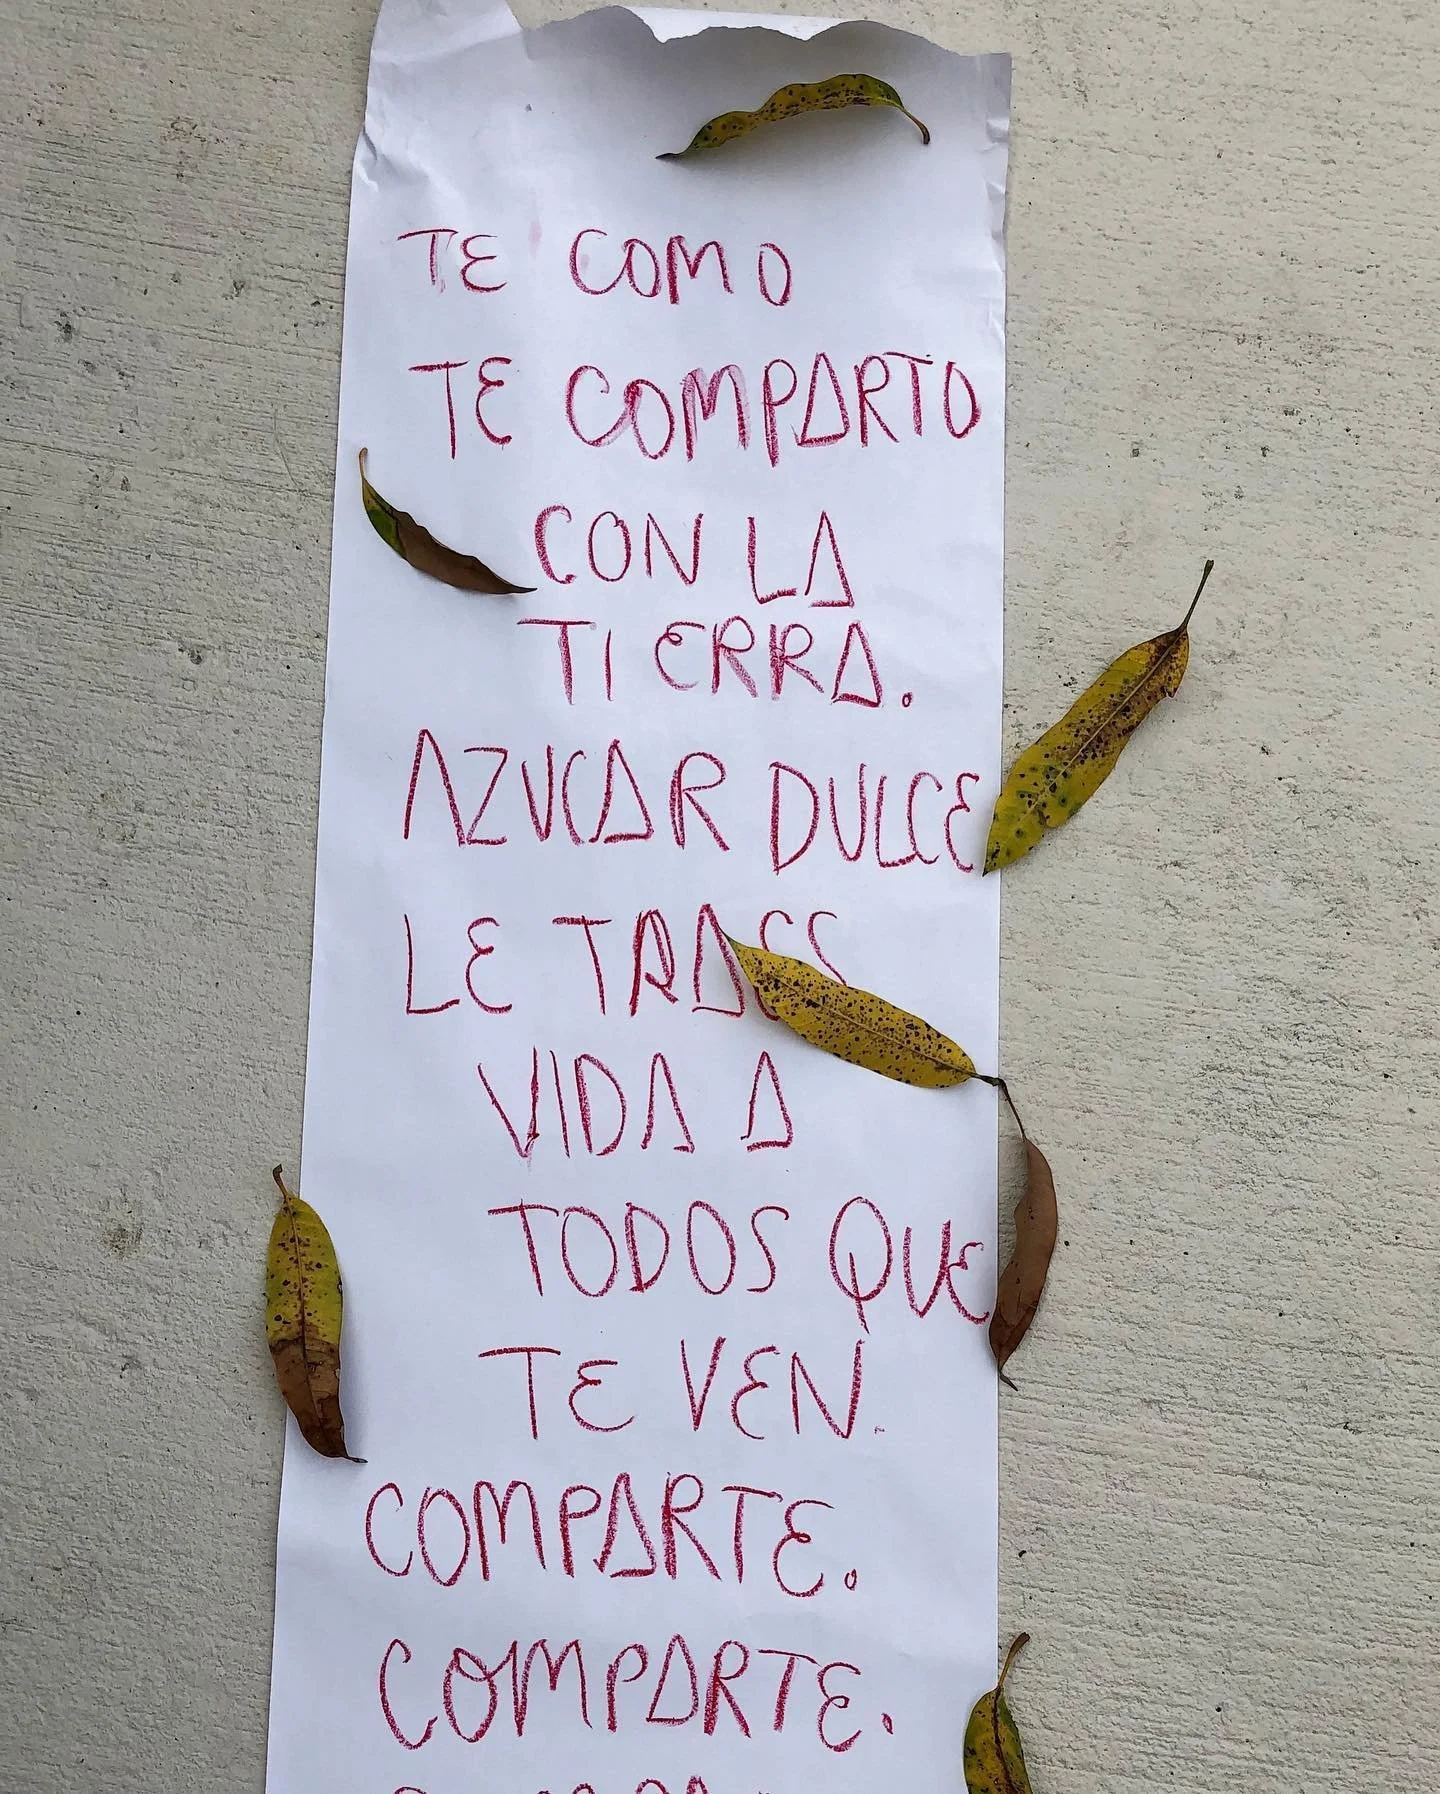 TE COMO
TE COMPARTO
CON LA
TIERRA.
AZUCAR DULCE
LE TRAES
VIDA A
TODOS QUE
TE VEN.
COMPARTE.
COMPARTE.